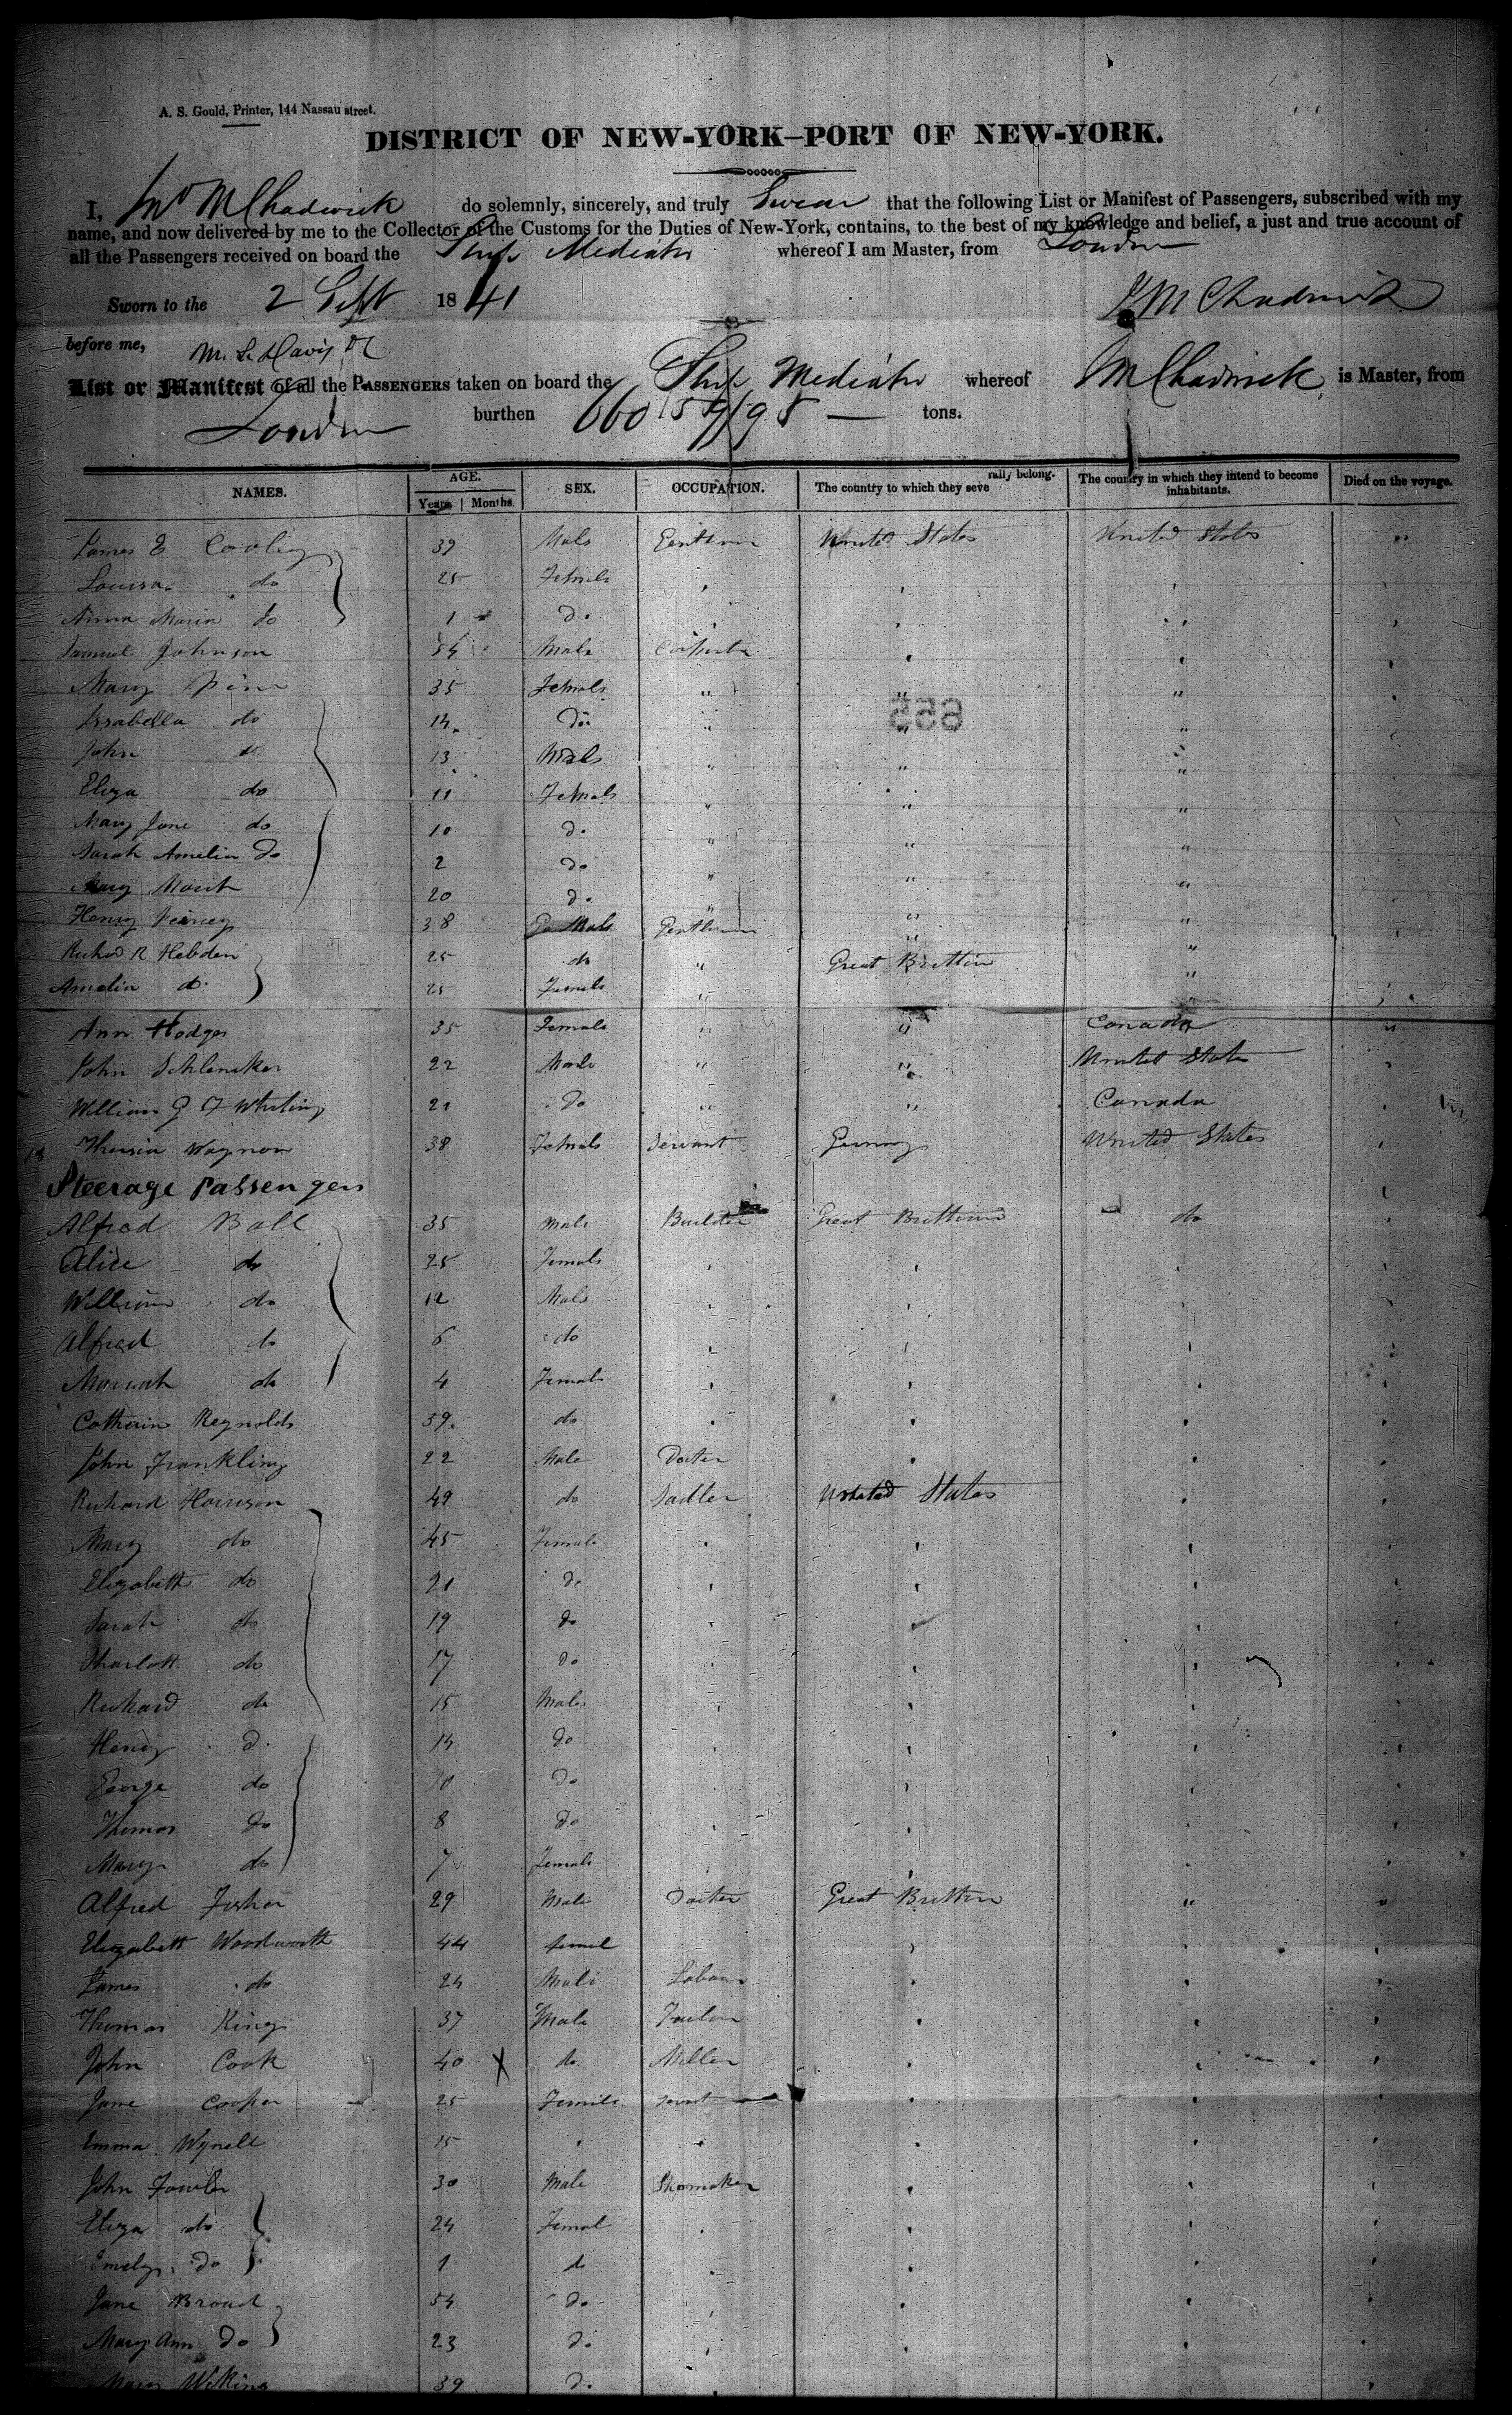 A. S. Gould, Printer, 144 Nassau street.
DISTRICT OF NEW-YORK—PORT OF NEW-YORK.
I, Jno M Chadwick do solemnly, sincerely, and truly Swear that the following List or Manifest of Passengers, subscribed with my
name, and now delivered by me to the Collector of the Customs for the Duties of New-York, contains, to the best of my knowledge and belief, a just and true account of
all the Passengers received on board the Ship Mediator whereof I am Master, from London
Sworn to the 2 Sept 1841 J M Chadwick
before me, M. L. Davis
List or Manifest of all the PASSENGERS taken on board the Ship Mediator whereof J M Chadwick is Master, from
London burthen 660 59/95 tons.
NAMES. AGE. Years Months. SEX. OCCUPATION. The country to which they severally belong. The country in which they intend to become inhabitants. Died on the voyage.
James E Cooling 39 Male Gentleman United States United States
Louisa do 25 Female
Anna Maria do 1 do
Samuel Johnson 54 Male
Mary 35 Female "
Issabella do 14 do
John do 13 Male
Eliza do 11 Female
Mary Jane do 10 do
Sarah Amelia do 2 do
Mary 20 do
Henry 38 Male Gentleman
Richard R Hebden 25 do " Great Brittin "
Amelia do 25 Female " "
Ann Hodges 35 Female " " Canada
John Schlencker 22 Male " " United States
William G F Whiting 21 do " " Canada
Wagnor 38 Female Servant Germany United States
Steerage Passengers
Alfred Ball 35 male Builder Great Brittian do
Alice do 25 Female
William do 12 Male
Alfred do 6 do
do 4 Female
Catherin Reynolds 39 do
John Frankling 22 Male
Richard Harrison 49 do Sadler United States
Mary do 45 Female
Elizabeth do 21 do
Sarah do 19 do
Sharlott do 17 do
Richard do 15 Male
Henry do 14 do
George do 10 do
Thomas do 8 do
Mary do 7 Female
Alfred Fisher 29 Male Great Brittin "
Elizabeth Woodworth 44 femal
James do 24 Male Labour
Thomas King 37 Male
John Cook 40 X do Miller
Jane Cooper 25 Female
Emma Wynell 15
John Fowler 30 Male Shomaker
Eliza do 24 Femal
Emely do 1 do
Jane Broad 54 do
Mary Ann do 23 do
Mary 39 do